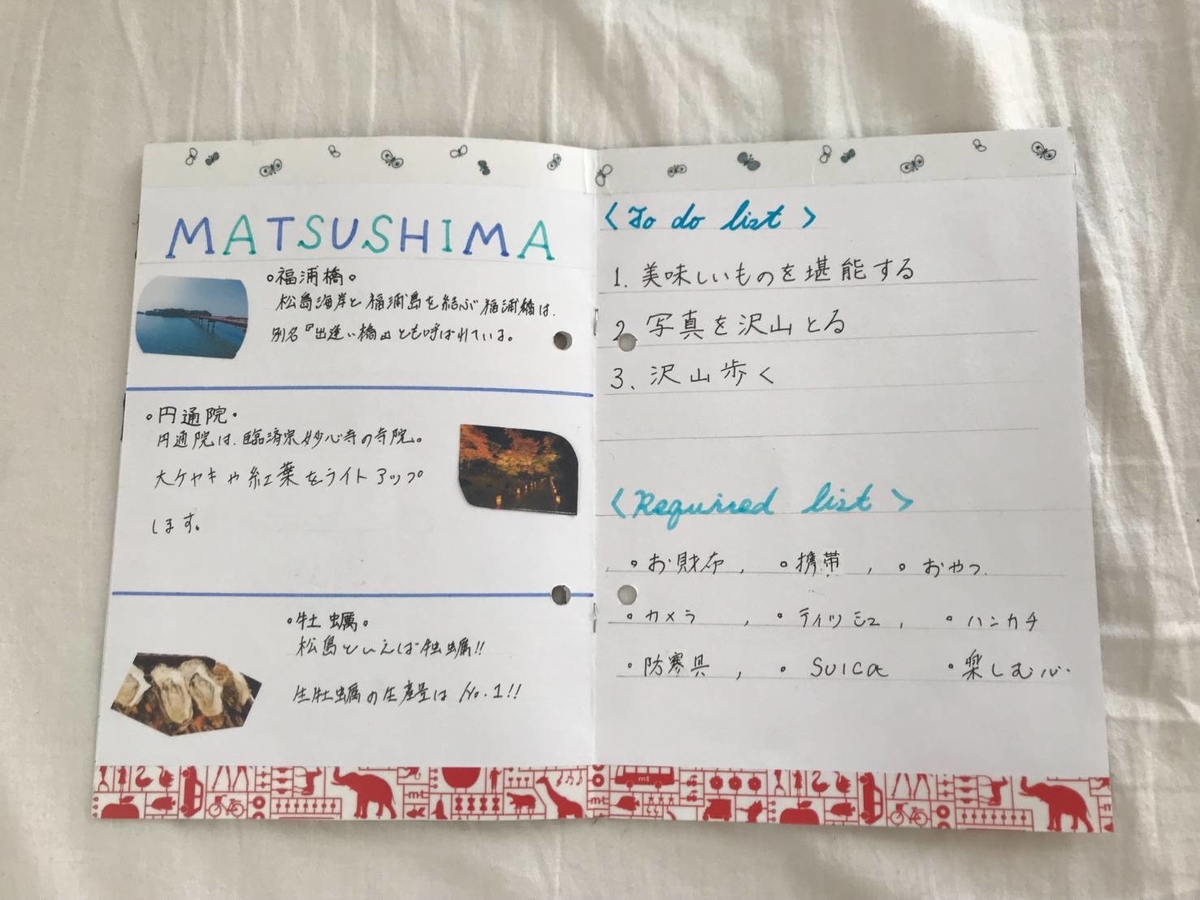 MATSUSHIMA
福浦橋
松島海岸と福浦島を結ぶ福浦橋は、
別名『出逢い橋』とも呼ばれている。
円通院
円通院は、臨済宗妙心寺の寺院。
大ケヤキや紅葉をライトアップ
します。
牡蠣
松島といえば牡蠣!!
生牡蠣の生産量は No.1!!
<To do list>
1. 美味しいものを堪能する
2. 写真を沢山とる
3. 沢山歩く
<Required list>
・お財布, ・携帯, ・おやつ
・カメラ, ・ティッシュ, ・ハンカチ
・防寒具, ・SUICA ・楽しむ心
mt
mt
mt